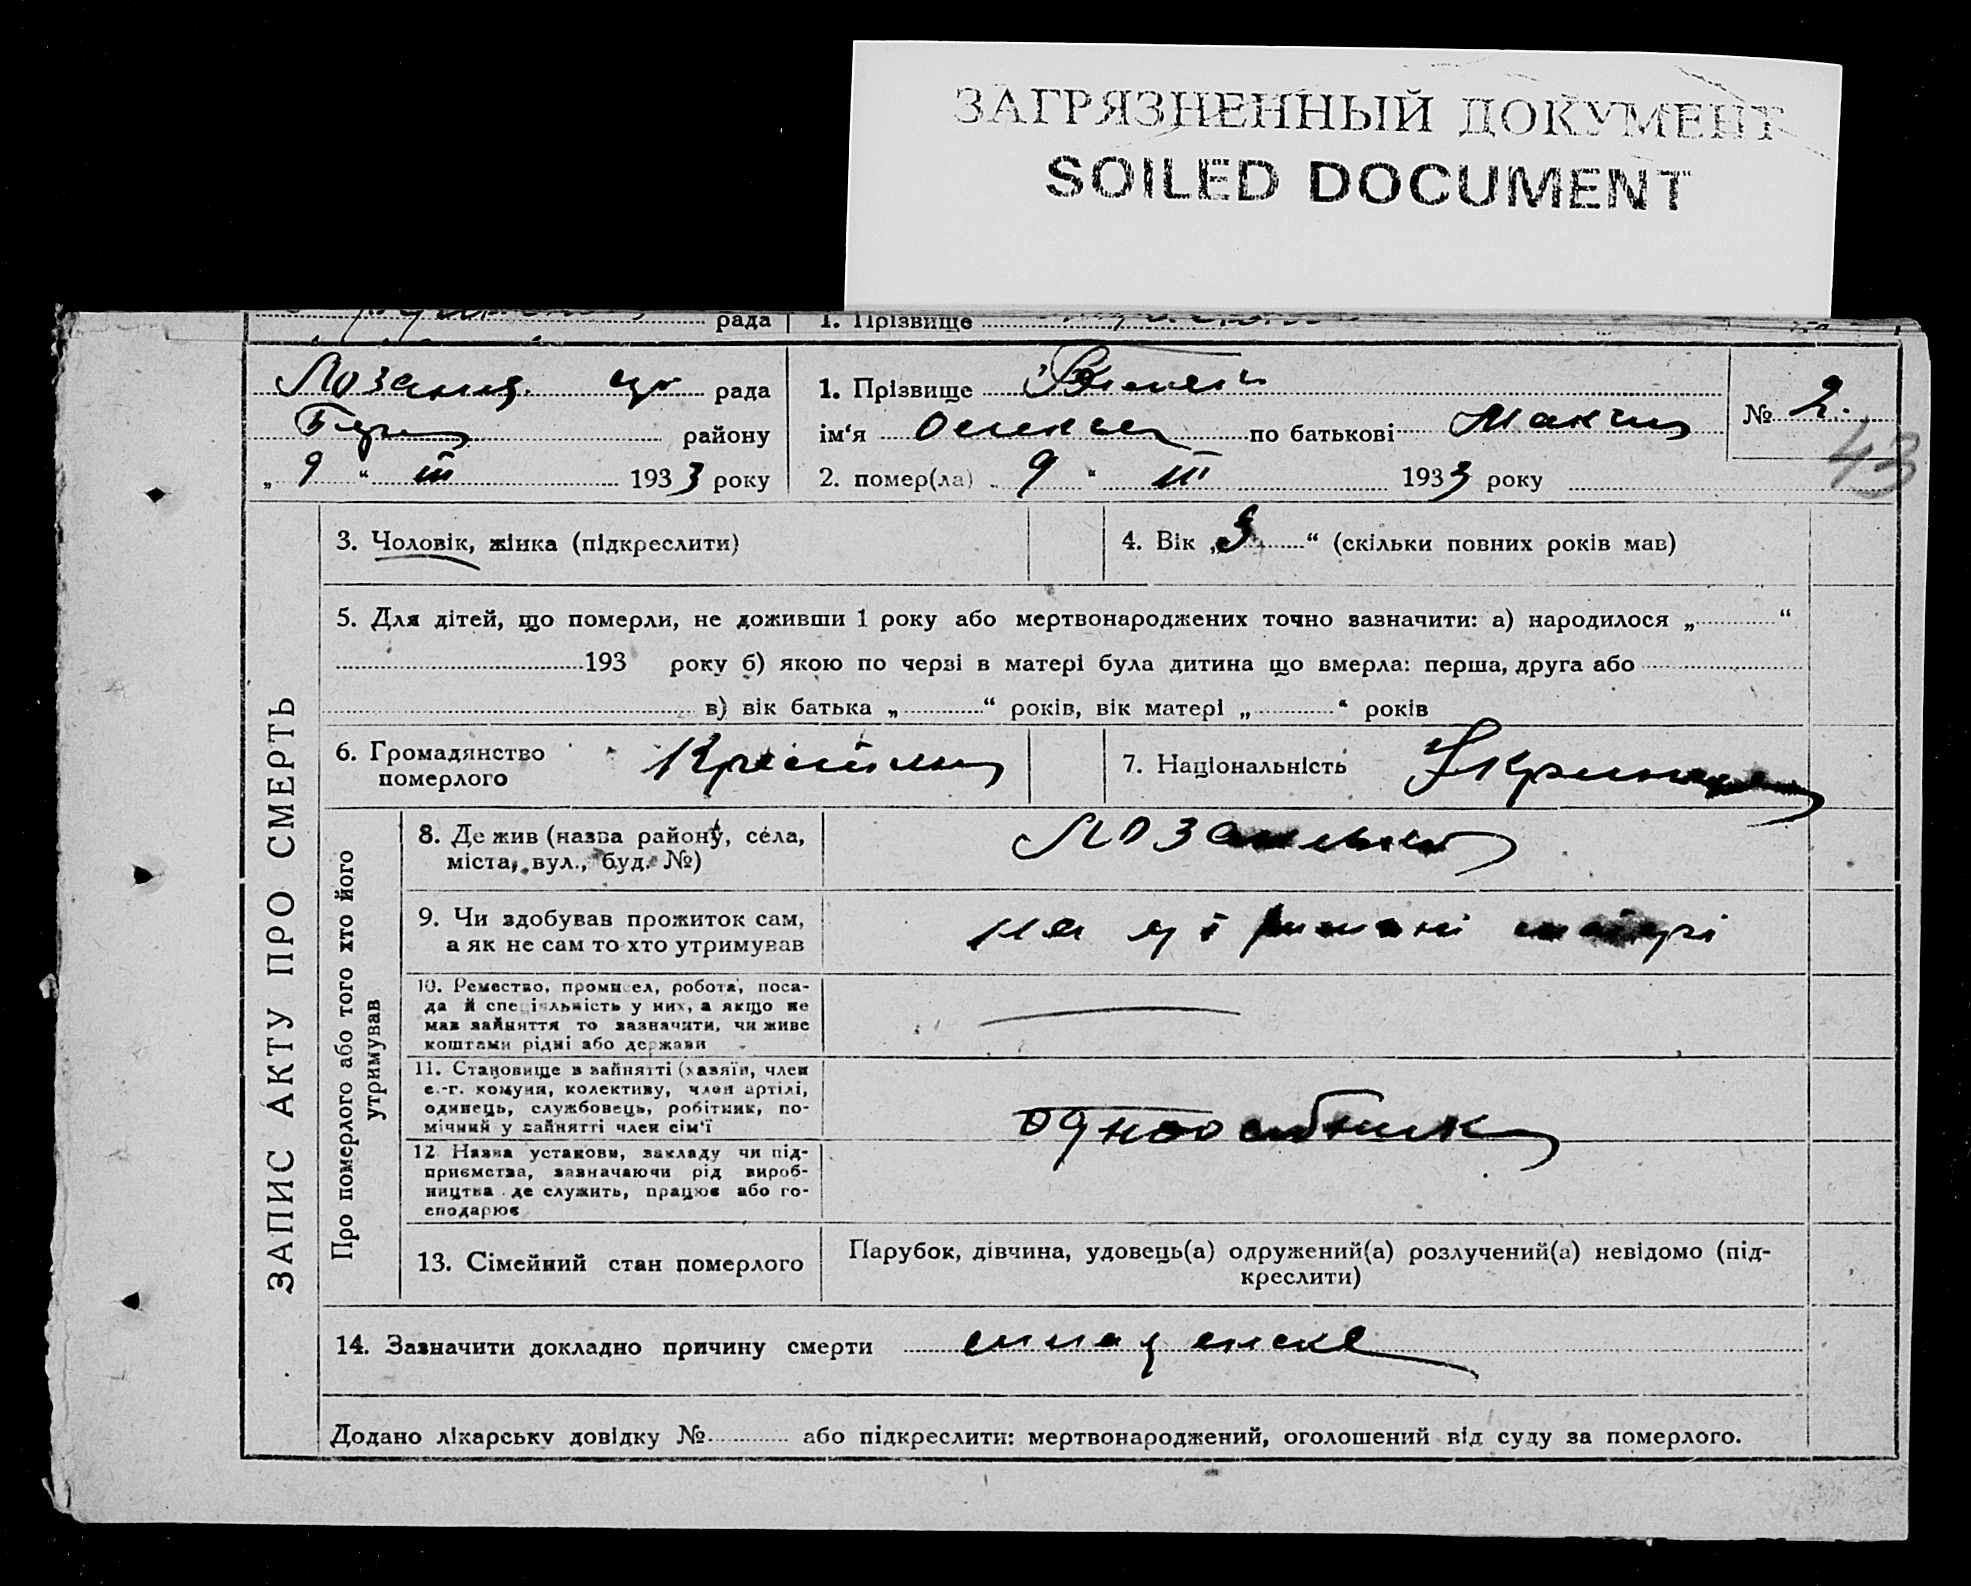 ЗАГРЯЗНЕННЫЙ ДОКУМЕНТ
SOILED DOCUMENT
рада 1. Прізвище
рада 1. Прізвище
№ 2.
району ім‘я по батькові
43
„ 9 “ III 1933 року 2. помер(ла) „ 9 “ III 1933 року
ЗАПИС АКТУ ПРО СМЕРТЬ
3. Чоловік, жінка (підкреслити) 4. Вік „ “ (скільки повних років мав)
5. Для дітей, що померли, не доживши 1 року або мертвонароджених точно зазначити: а) народилося „ “
193 року б) якою по черзі в матері була дитина що вмерла: перша, друга або
в) вік батька „ “ років, вік матері „ “ років
6. Громадянство
померлого
7. Національність
Про померлого або того хто його
утримував
8. Де жив (назва району, села,
міста, вул., буд. №)
9. Чи здобував прожиток сам,
а як не сам то хто утримував
на матері
10. Ремество, промисел, робота, поса-
да й спеціяльність у них, а якщо не
мав зайняття то зазначити, чи живе
коштами рідні або держави
11. Становище в зайнятті (хазяїн, член
с.-г. комуни, колективу, член артілі,
одинець, службовець, робітник, по-
мічний у зайнятті член сім‘ї
одноосібник
12 Назва установи, закладу чи під-
приємства, зазначаючи рід вироб-
ництва де служить, працює або го-
сподарює
13. Сімейний стан померлого
Парубок, дівчина, удовець(а) одружений(а) розлучений(а) невідомо (під-
креслити)
14. Зазначити докладно причину смерти
Додано лікарську довідку № або підкреслити: мертвонароджений, оголошений від суду за померлого.